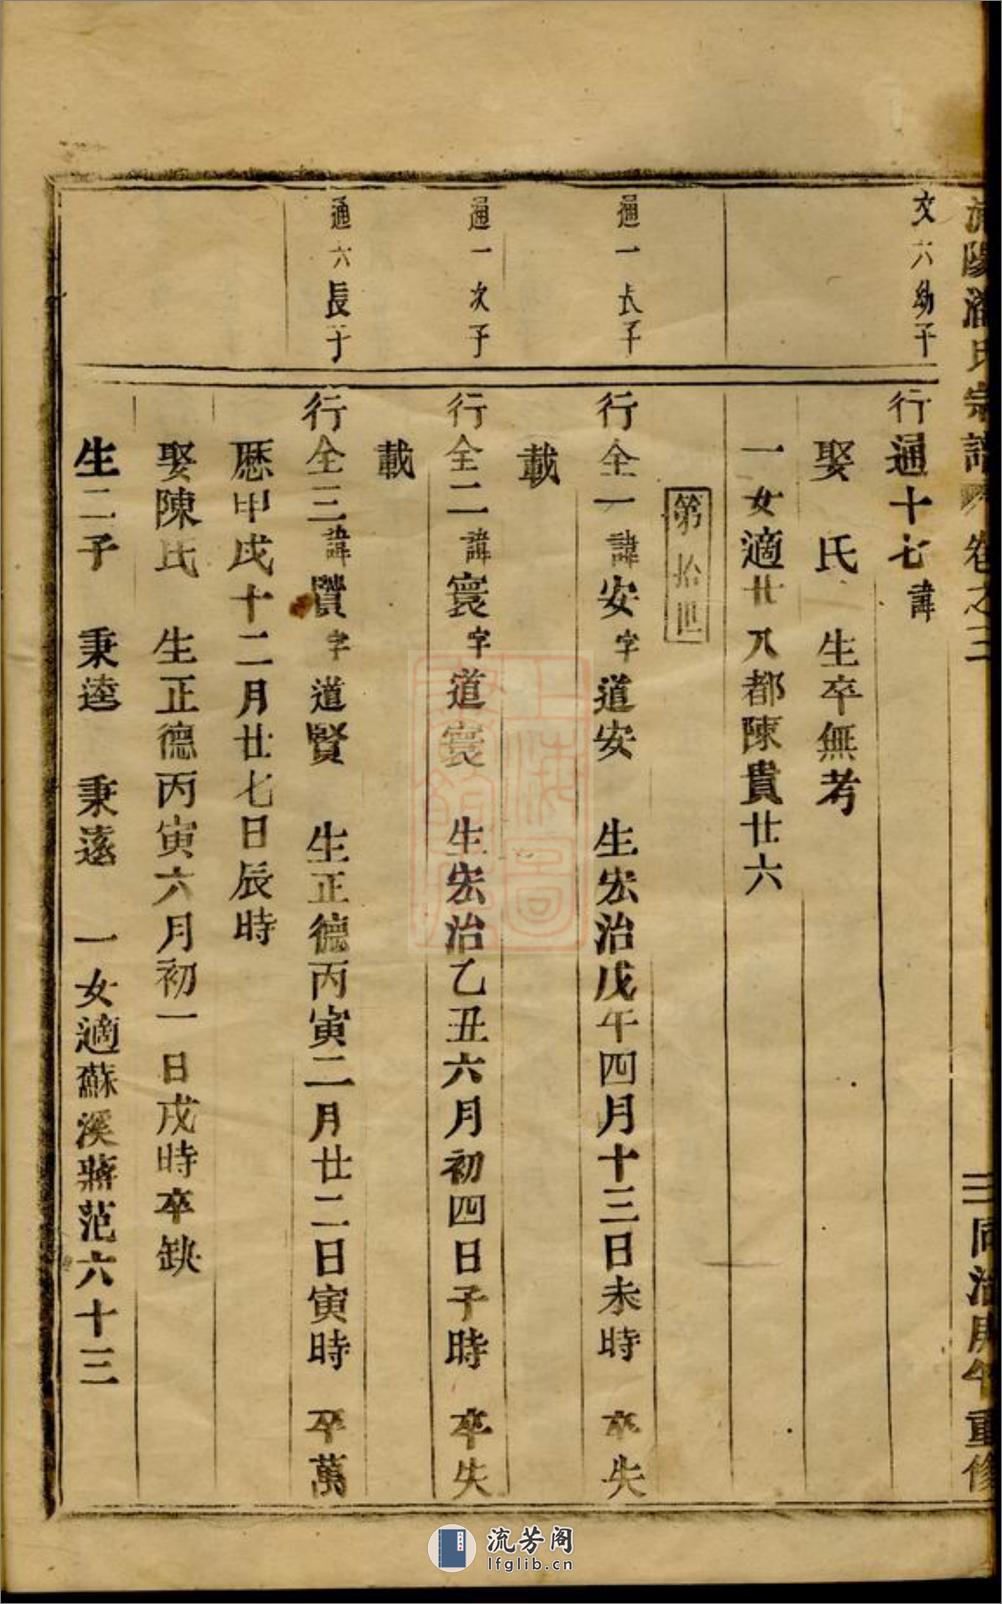 陽潘氏宗譜 卷之三 三 同治庚午重修
文六幼子
行通十七諱
娶 氏 生卒無考
一女適廿八都陳貴廿六
第拾世
通一長子
行全一諱安字道安 生宏治戊午四月十三日未時 卒失
載
通一次子
行全二諱寰字道寰 生宏治乙丑六月初四日子時 卒失
載
通六長子
行全三諱賢字道賢 生正德丙寅二月廿二日寅時 卒萬
歷甲戌十二月廿七日辰時
娶陳氏 生正德丙寅六月初一日戌時卒缺
生二子 秉逵 秉遠 一女適蘇溪蔣范六十三
流芳阁
lfglib.cn